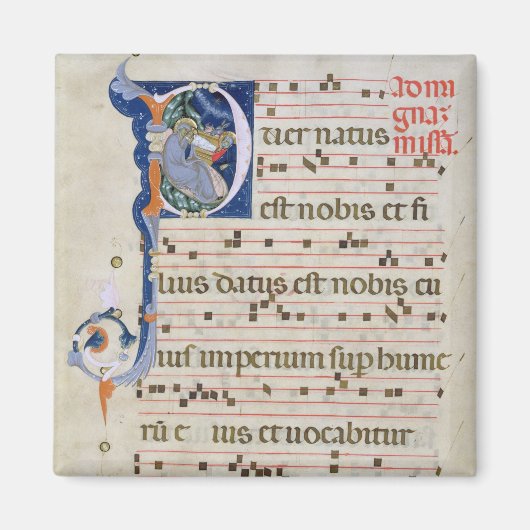 Puer natus
est nobis et fi
lius datus est nobis cu
ius imperium sup hume
rū e ius et uocabitur
ad ma
gnaz
missā.